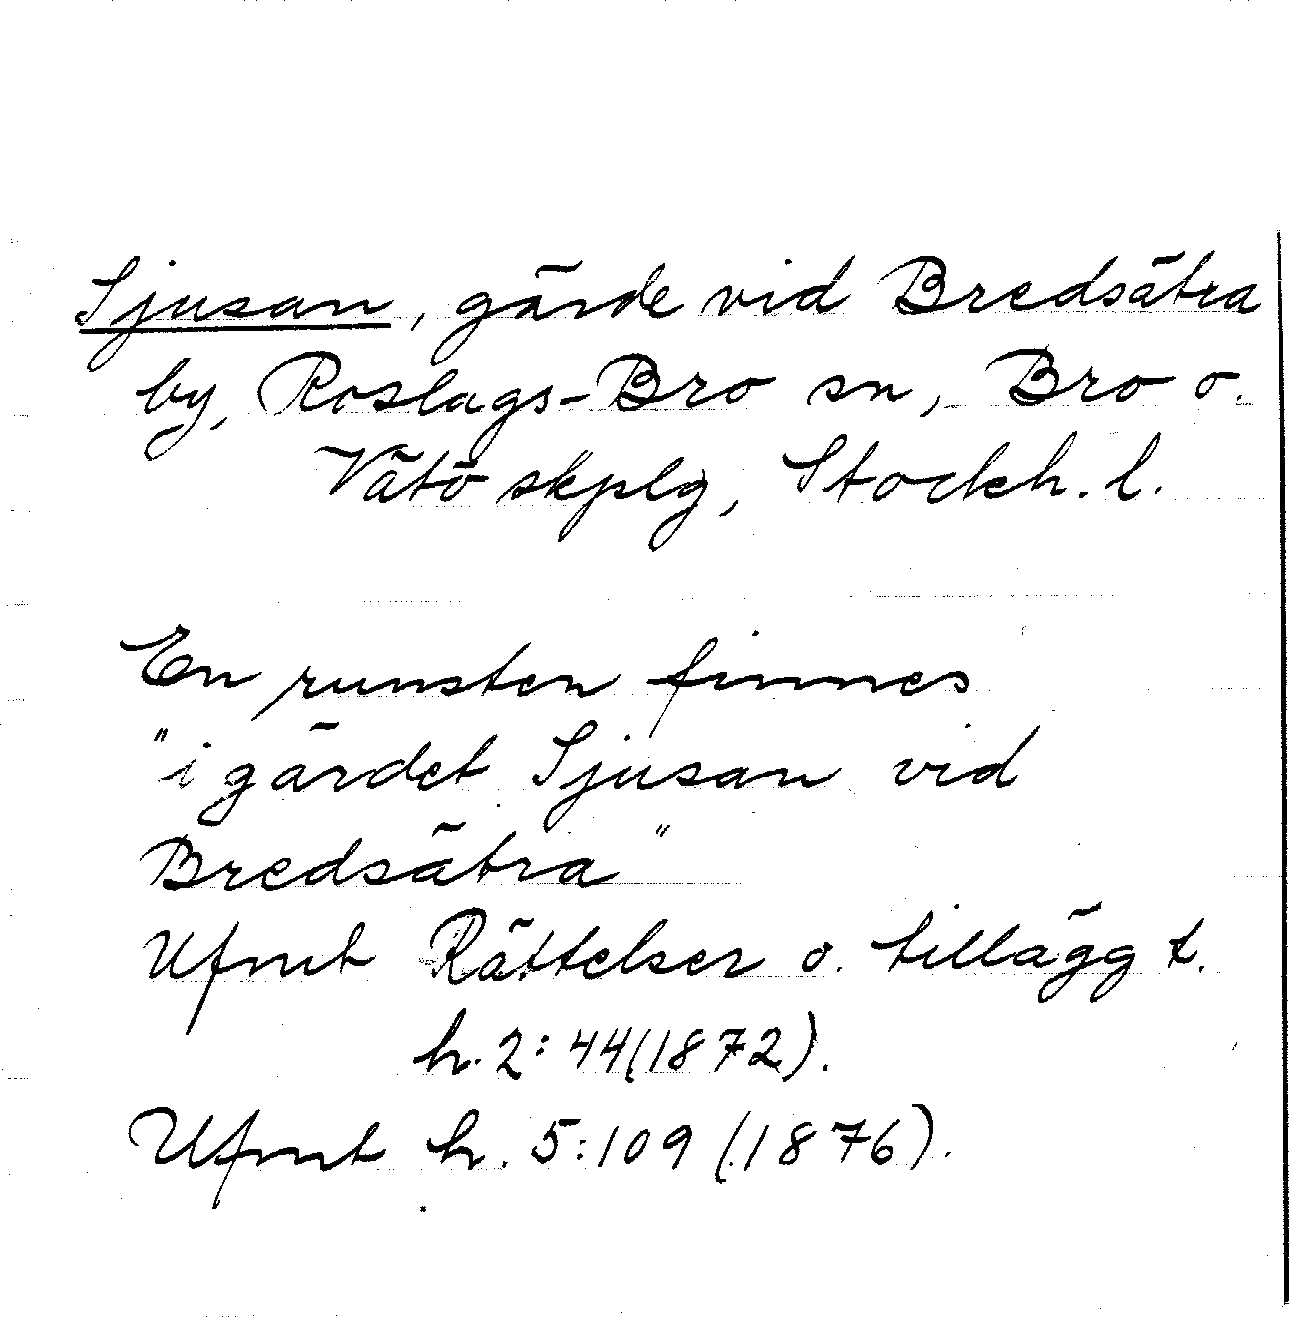 Sjusan, gärde vid Bredsätra
by, Roslags-Bro sn, Bro o.
Vätö skplg, Stockh. l.
En runsten finnes
"i gärdet Sjusan vid
Bredsätra"
Ufmt Rättelser o. tillägg t.
h. 2:44 (1872).
Ufmt h. 5:109 (1876).